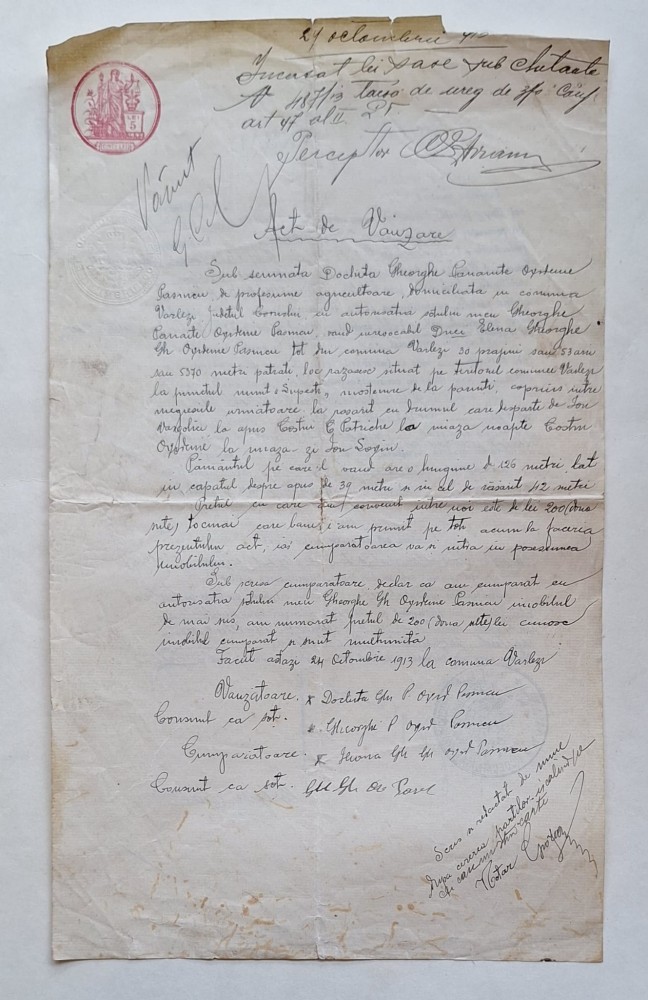 24 octombrie 913
Incasat lei sase sub chitanta
N 487/13 taxa de ureg de 3% Conf
art 47 al II
Perceptor
LEI 5
Vazut
Act de Vânzare
Sub semnata Dochita Gheorghe Panaite
de profesiune agricultoare, domiciliata in comuna
Varlezi judetul Covurlui cu autorisatia sotului meu Gheorghe
Panaite vand irevocabil Dnei Elena Gheorghe
Gh tot din comuna Varlezi 30 prajini sau 53 arii
sau 5370 metri patrati, loc razasesc situat pe teritoriul comunei Varlezi
la punctul numit mostenire de la parinti, coprins intre
megiesiile urmatoare la rasarit cu drumul care desparte de Ion
la apus Costin G Patriche la miaza noapte Costin
la miaza zi Ion
Pamântul pe care-l vand are o lungime d 126 metri lat
in capatul despre apus de 39 metri si in cel de rasarit 42 metri
Pretul cu care am convenit intre noi este de lei 200 (doua
sute) tocmai care bani i-am primit pe toti acum la facerea
prezentului act, iar cumparatoarea va si intra in posesiunea
imobilului.
Sub scrisa cumparatoare declar ca am cumparat cu
autorisatia sotului meu Gheorghe Gh imobilul
de mai sus, am numarat pretul de 200 (doua sute) lei cunosc
imobilul cumparat si sunt multumita
Facut astazi 24 Octombrie 1913 la comuna Varlezi
Vanzatoare. x Dochita Gh P.
Consimt ca sot. x Gheorghe P
Cumparatoare. x Ileana Gh Gh
Consimt ca sot. Gh Gh
Scris si redactat de mine
dupa cererea partilor
si care nu stiu carte
Notar